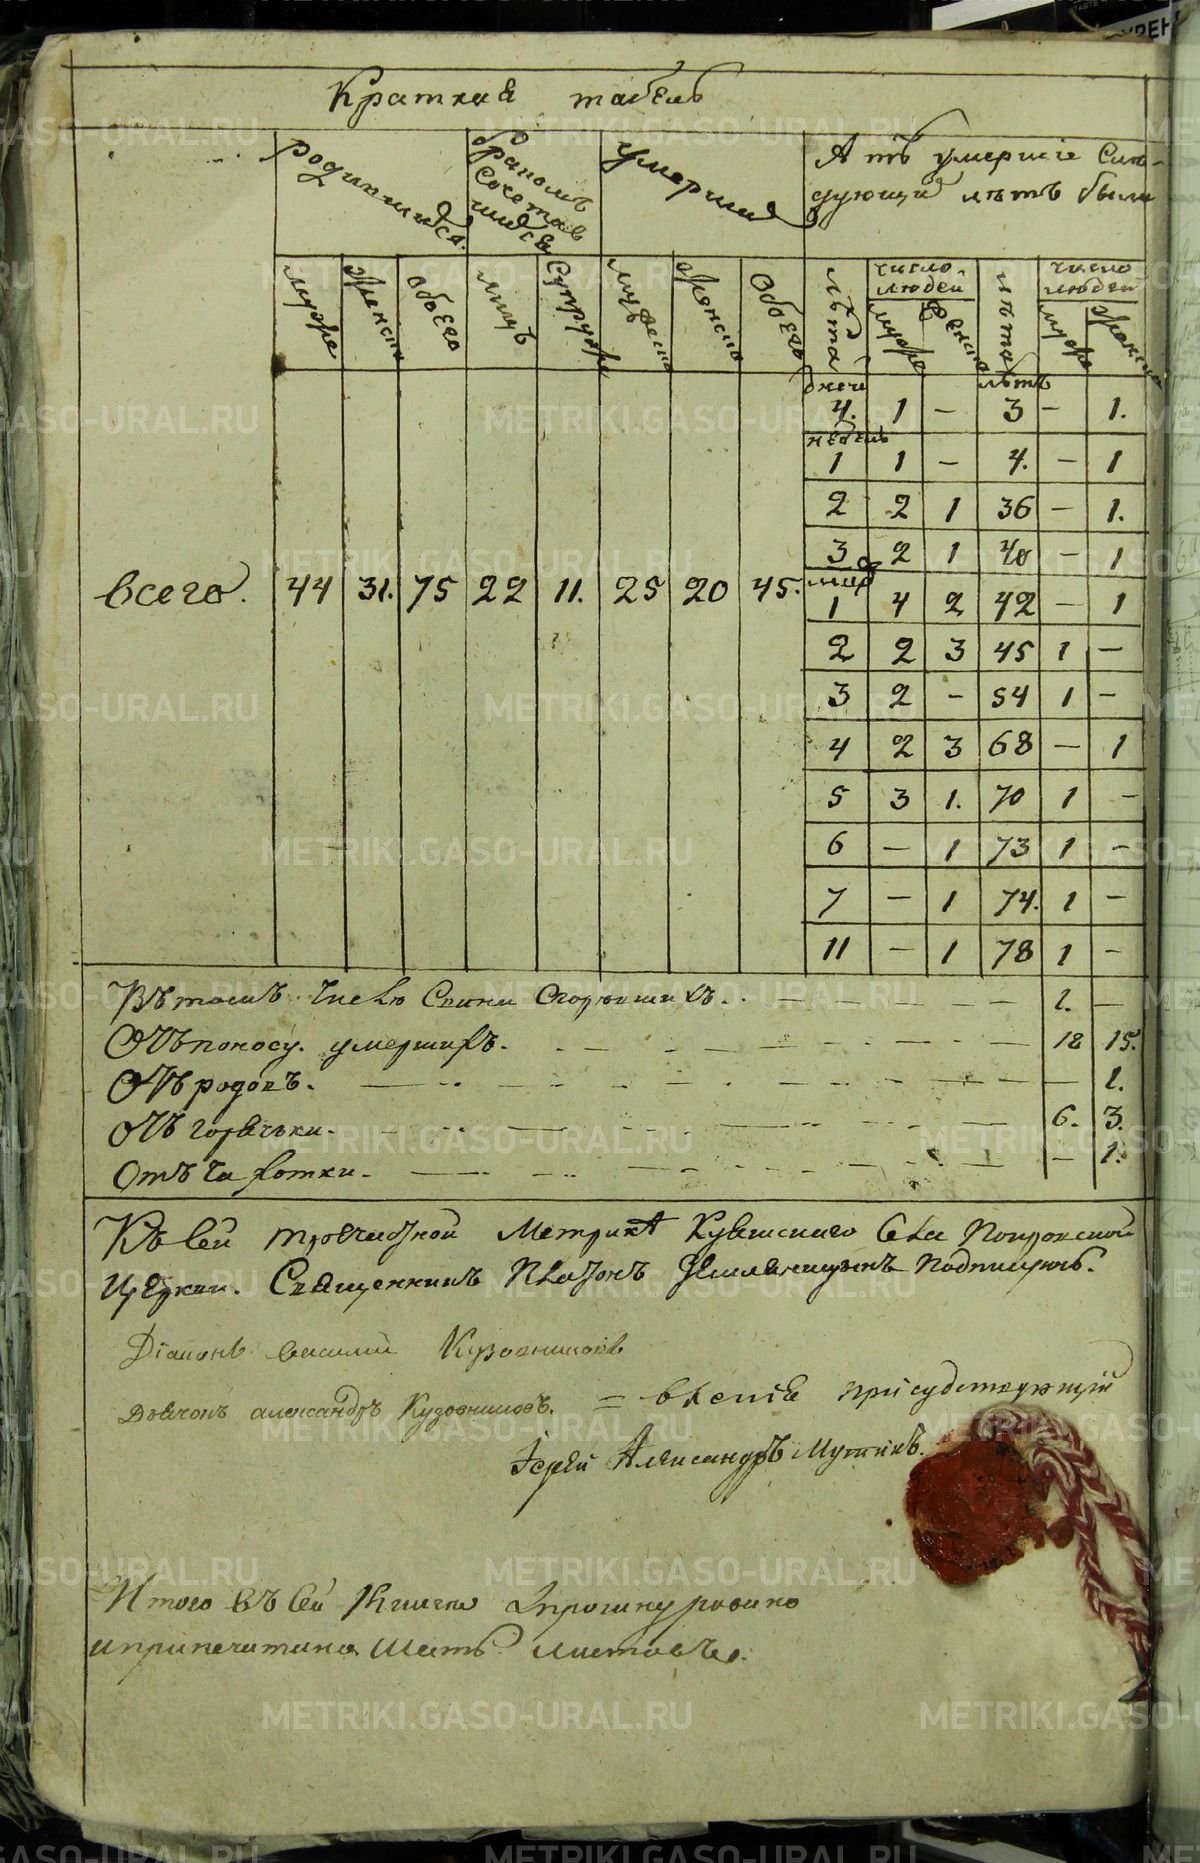 Краткая табель
родившихся.
бракомъ
Сочетав
шихся
умершия
А тѣ умершіе Слѣ-
дующихъ лѣтъ были
мужес
женска
обоего
лицъ
Супруже
мужеска
женска
обоего
лѣта
число
людей
мужес
женска
лѣта
число
людей
мужес
женска
дней лѣтъ
4. 1 – 3 – 1.
недель
1 1 – 4. – 1
2 2 1 36 – 1.
3 2 1 40 – 1
всего. 44 31. 75 22 11. 25 20 45.
1 4 2 42 – 1
2 2 3 45 1 –
3 2 – 54 1 –
4 2 3 68 – 1
5 3 1. 70 1 –
6 – 1 73 1 –
7 – 1 74. 1 –
11 – 1 78 1 –
Въ томъ числѣ 1. –
Отъ поносу. умершихъ. 18 15.
Отъ родовъ. – 1.
Отъ горячьки. 6. 3.
Отъ чахотки. – 1.
Къ сей троечастной Метрикѣ Кувашского Села Покровской
Церкви. Священникъ Платонъ Земляницынъ Подписуюсь.
Діаконъ василий Кузовниковъ
Дьячокъ александръ Кузовниковъ. =
присудствующій
Іерей Александръ Мутинъ.
Итого въ сей Книги прошнуровано
и припечатано шесть листовъ.
METRIKI.GASO-URAL.RU